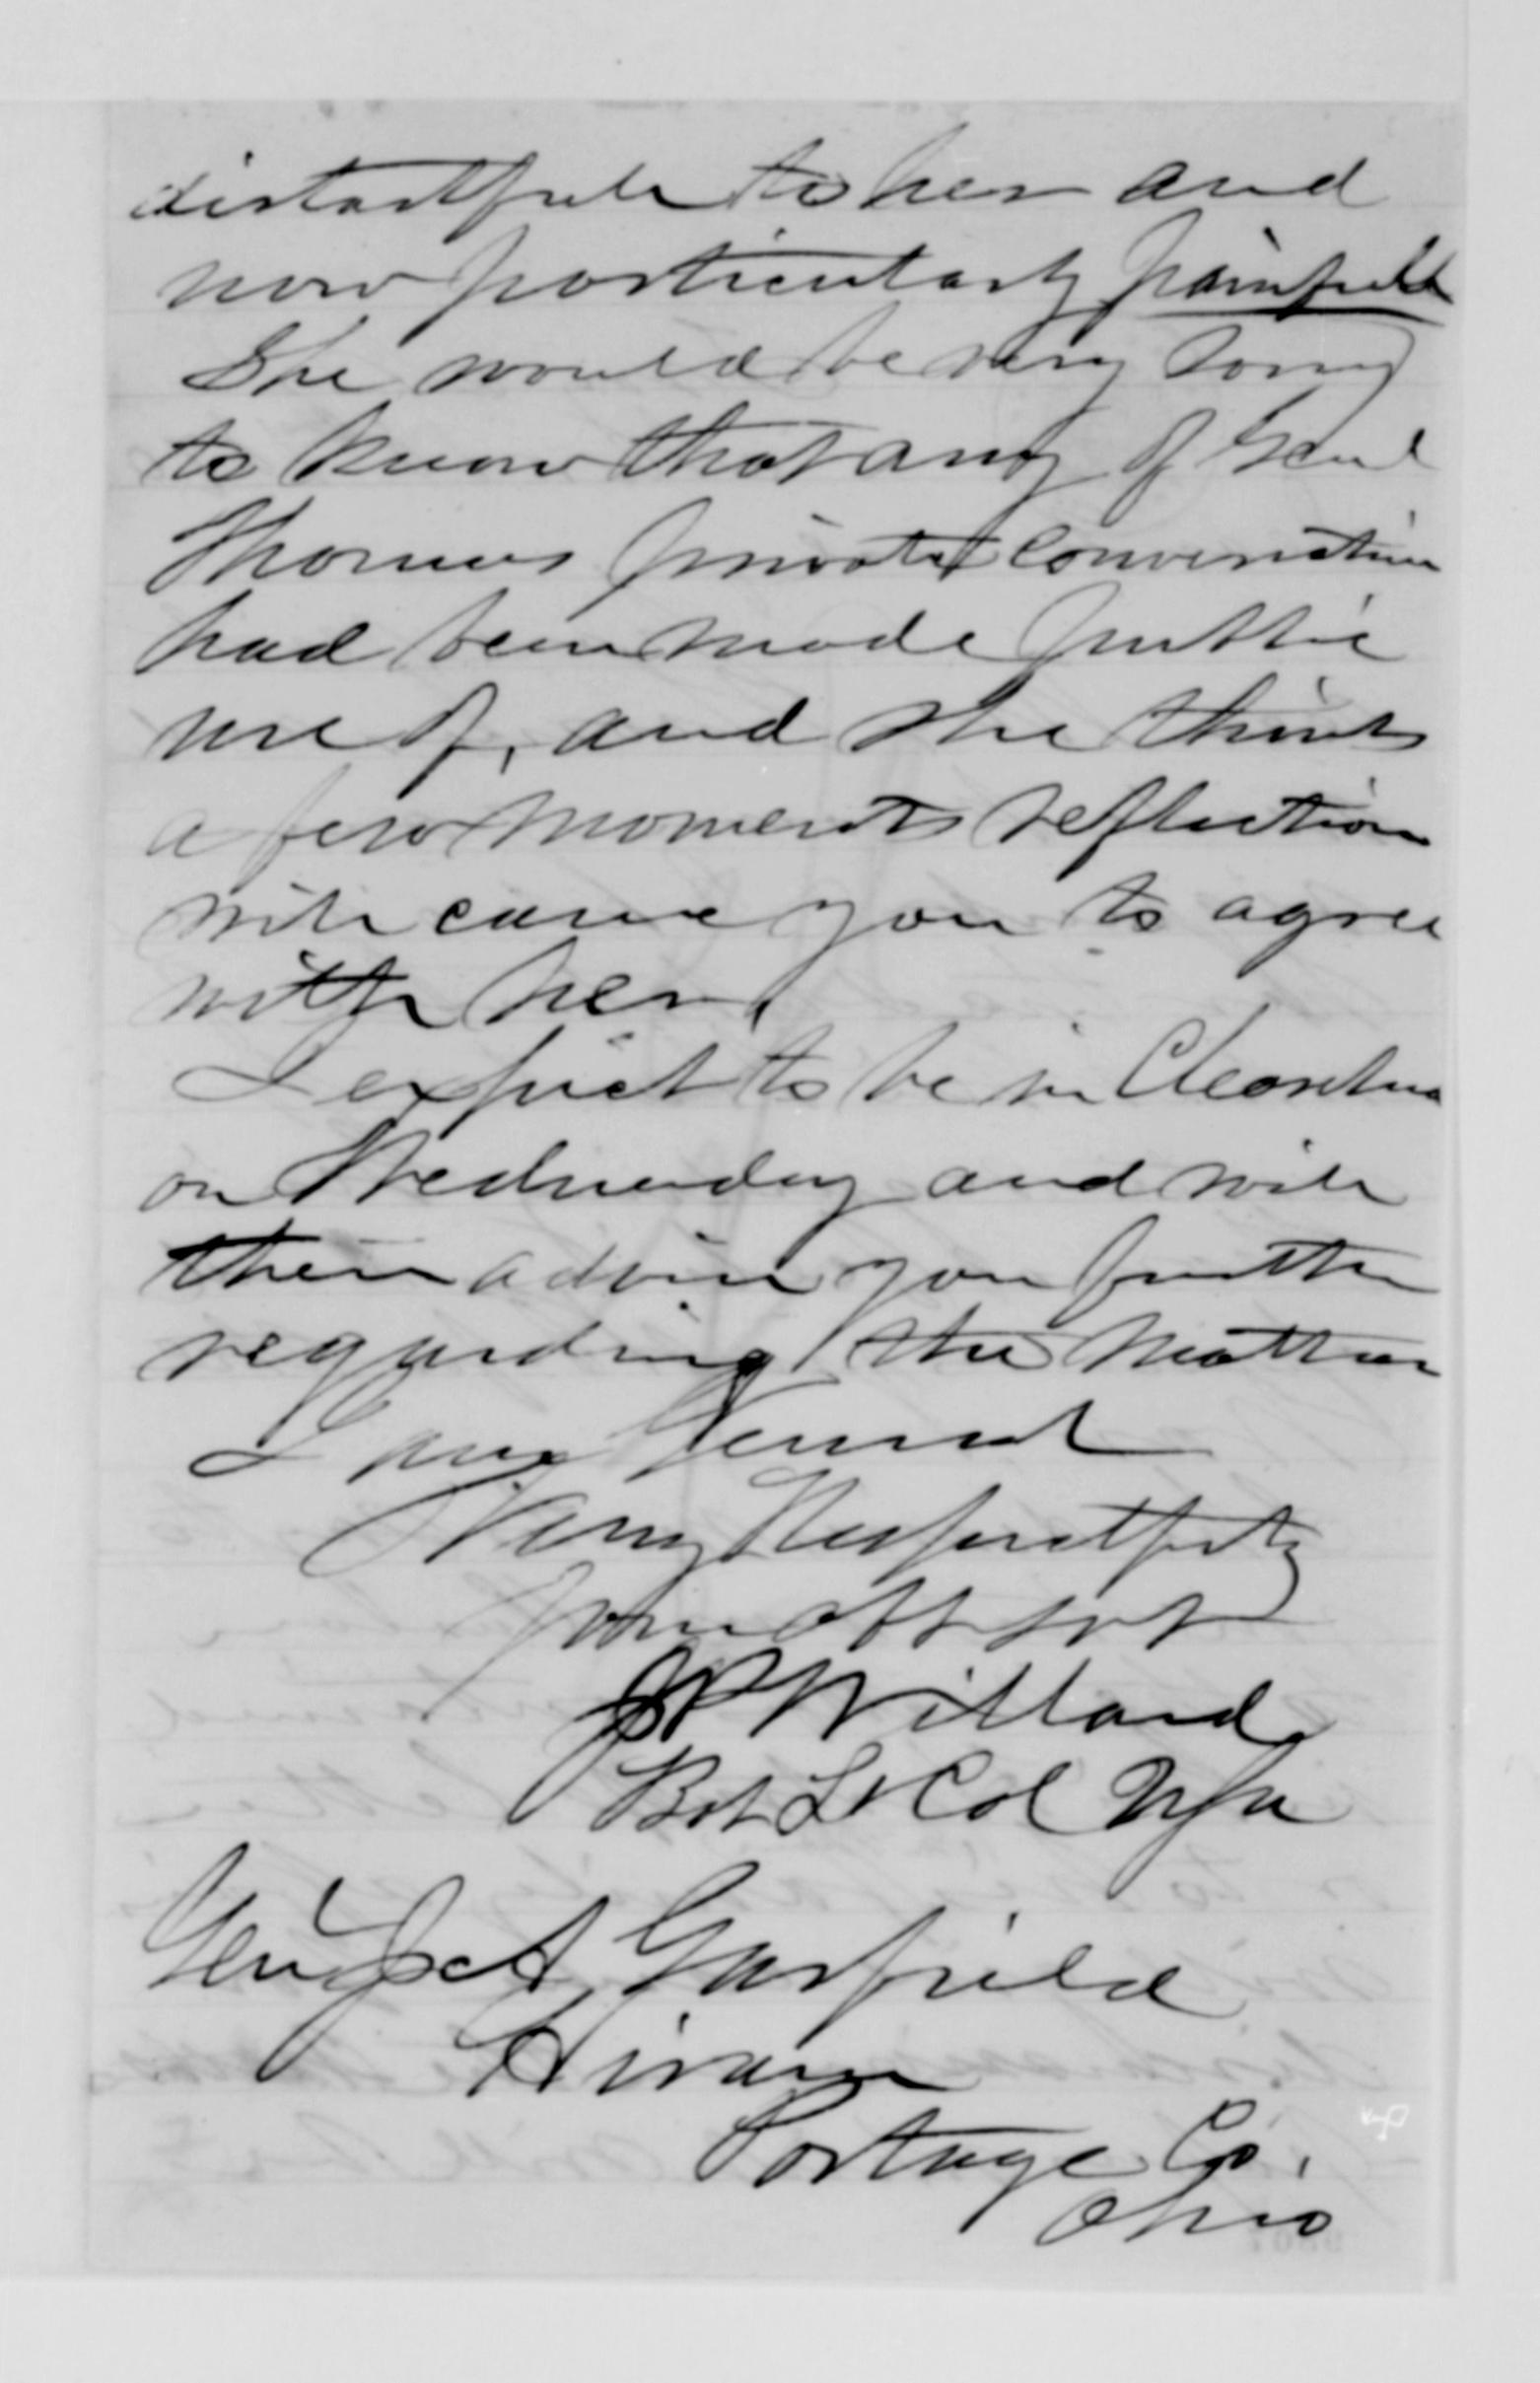 distastful to her and
now particularly painful
She would be very sorry
to know that any of Genl
Thomas private conversation
had been made public
use of, and she thinks
a few moments reflection
will cause you to agree
with her.
I expect to be in Cleveland
on Wednesday and will
then advise you further
regarding the matter
I am General
Very Respectfuly
Your obt svt
J P Willard
Bvt Lt Col USA
Genl Jas A Garfield
Hiram
Portage Co.
Ohio